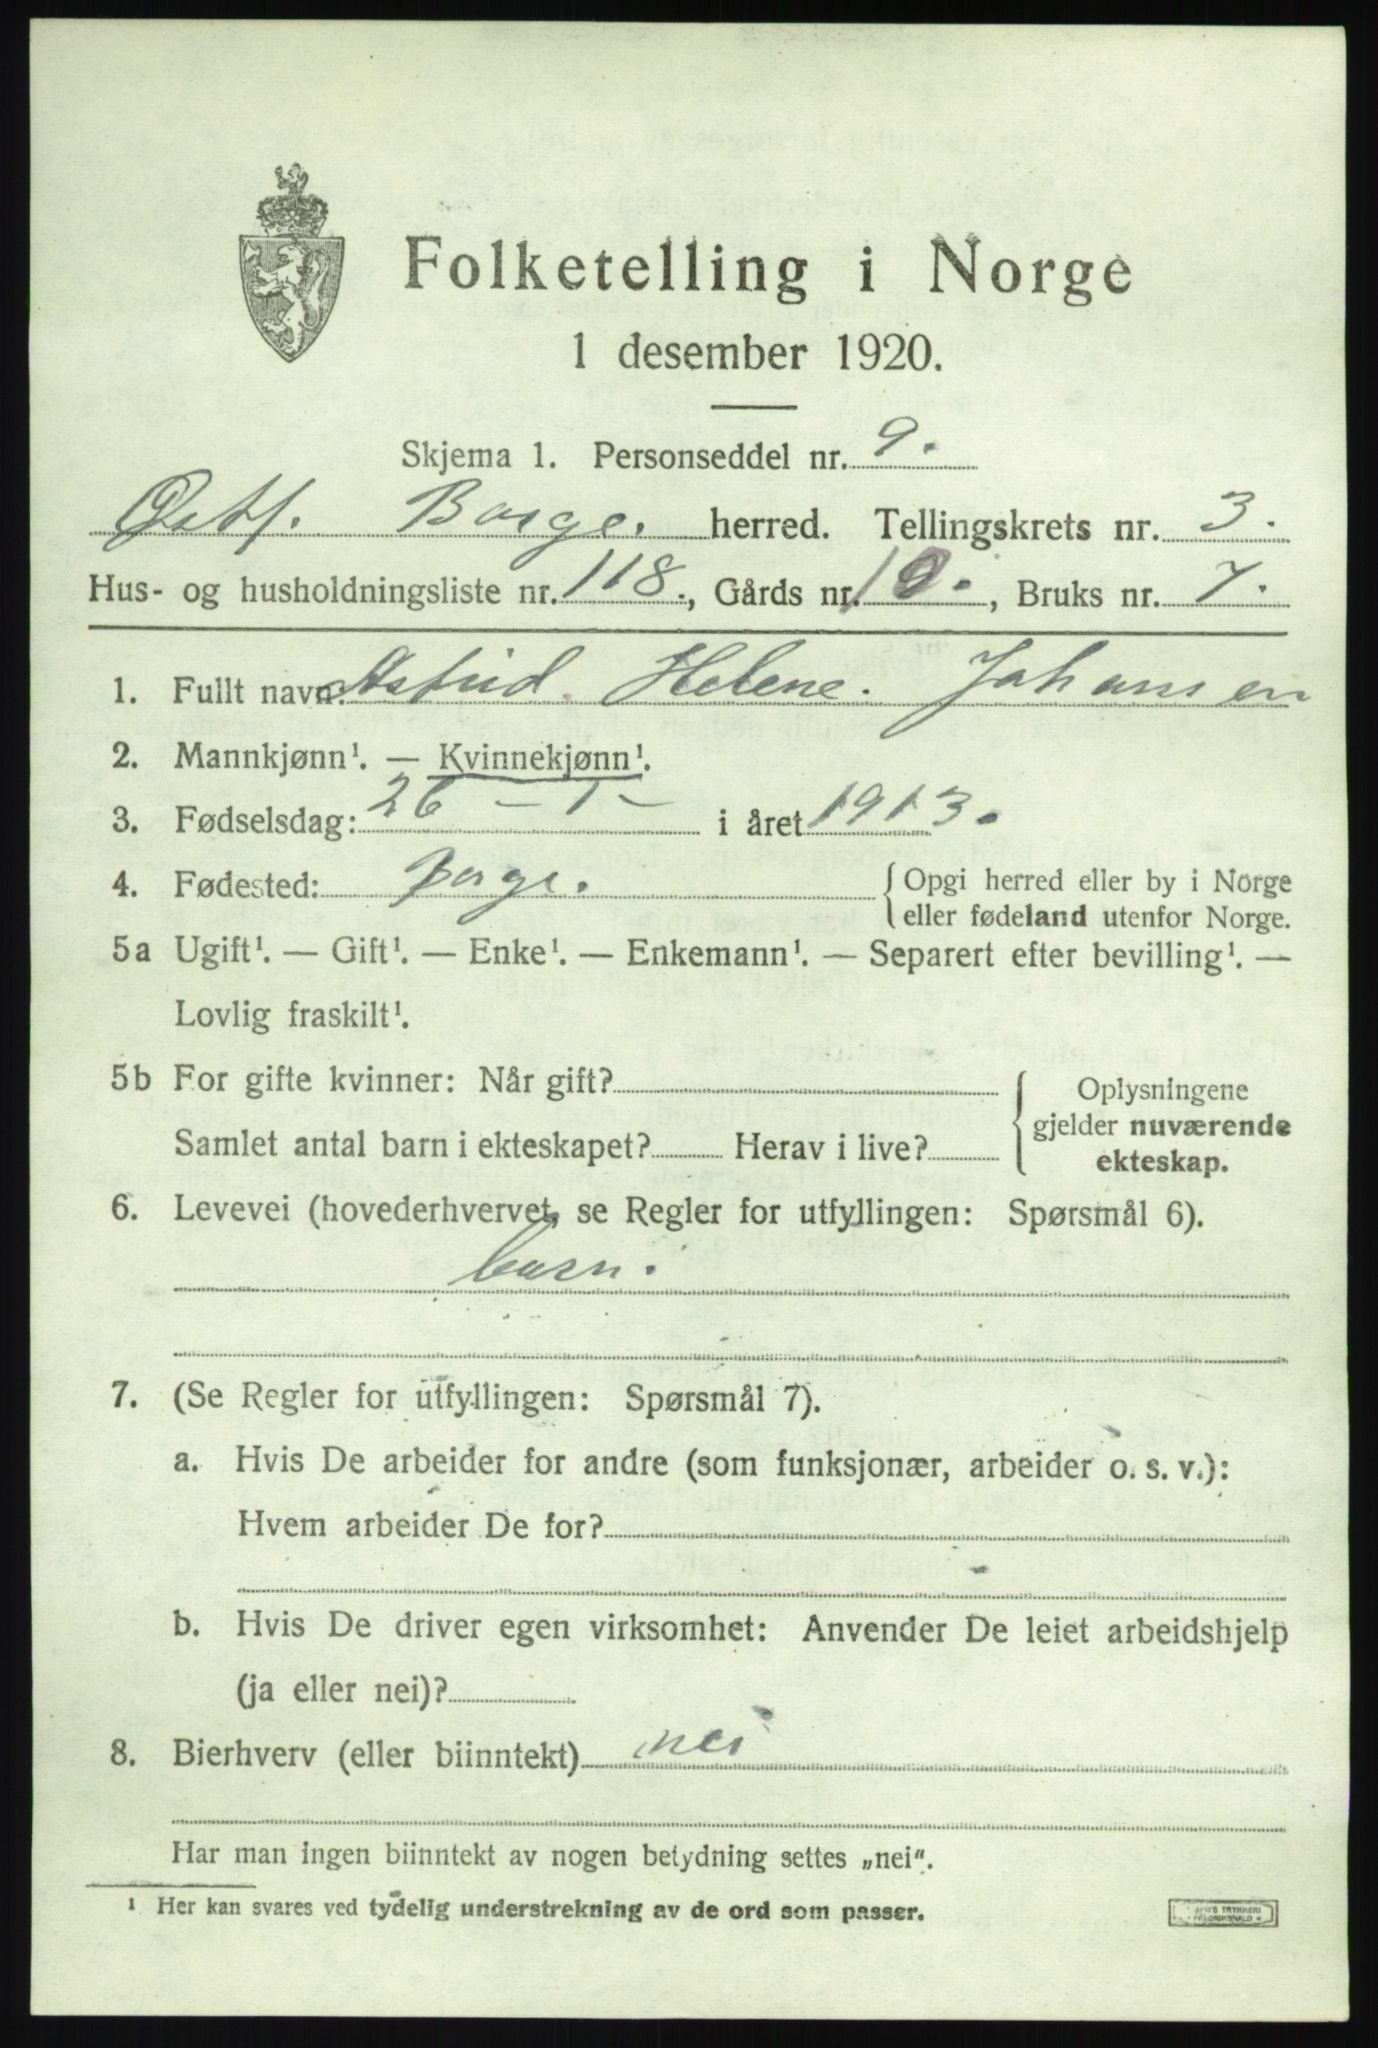 Folketelling i Norge
1 desember 1920.
Skjema 1. Personseddel nr. 9.
Østf. Borge. herred. Tellingskrets nr. 3.
Hus- og husholdningsliste nr. 118., Gårds nr. 10., Bruks nr. 7.
1. Fullt navn: Astrid Helene. Johansen
2. Mannkjønn¹. — Kvinnekjønn¹.
3. Fødselsdag: 26 - 1 - i året 1913.
4. Fødested: Borge. { Opgi herred eller by i Norge
eller fødeland utenfor Norge.
5a Ugift¹. — Gift¹. — Enke¹. — Enkemann¹. — Separert efter bevilling¹. —
Lovlig fraskilt¹.
5b For gifte kvinner: Når gift?
Samlet antal barn i ekteskapet? Herav i live?
Oplysningene
gjelder nuværende
ekteskap.
6. Levevei (hovederhvervet, se Regler for utfyllingen: Spørsmål 6).
barn.
7. (Se Regler for utfyllingen: Spørsmål 7).
a. Hvis De arbeider for andre (som funksjonær, arbeider o. s. v.):
Hvem arbeider De for?
b. Hvis De driver egen virksomhet: Anvender De leiet arbeidshjelp
(ja eller nei)?
8. Bierhverv (eller biinntekt) nei
Har man ingen biinntekt av nogen betydning settes „nei“.
¹ Her kan svares ved tydelig understrekning av de ord som passer.